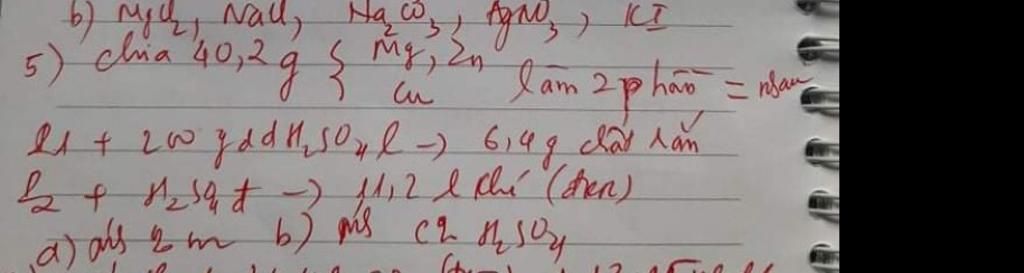 b) MgCl2, NaCl, Na2CO3, AgNO3, KI
5) chia 40,2g { Mg, Zn
Cu làm 2 phần = nhau
P1 + 200g dd H2SO4 l -> 6,4g chất rắn
P2 + H2SO4 đ -> 11,2 l khí (đktc)
a) % m b) C% H2SO4